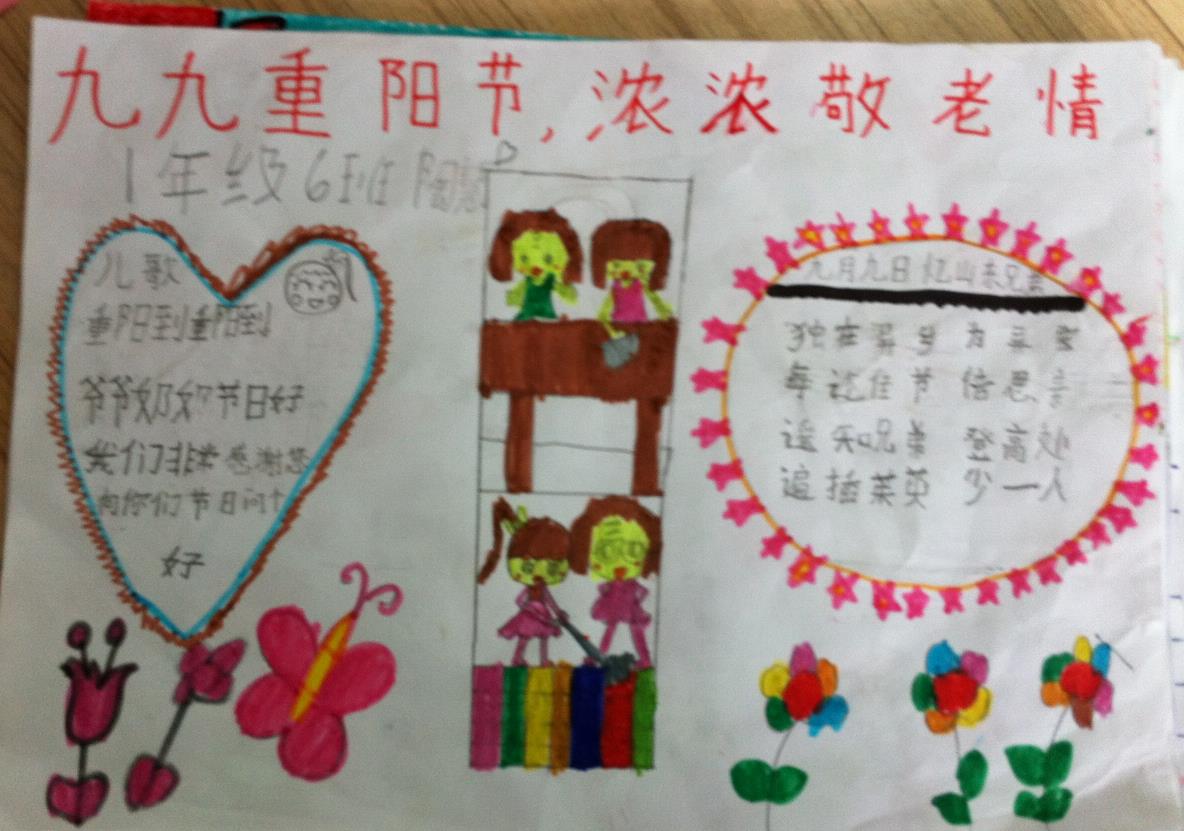 九九重阳节,浓浓敬老情
1年级6班 陶
儿歌
重阳到重阳到
爷爷奶奶节日好
我们非常感谢您
向你们节日问个
好
九月九日忆山东兄弟
独在异乡 为异客
每逢佳节 倍思亲
遥知兄弟 登高处
遍插茱萸 少一人